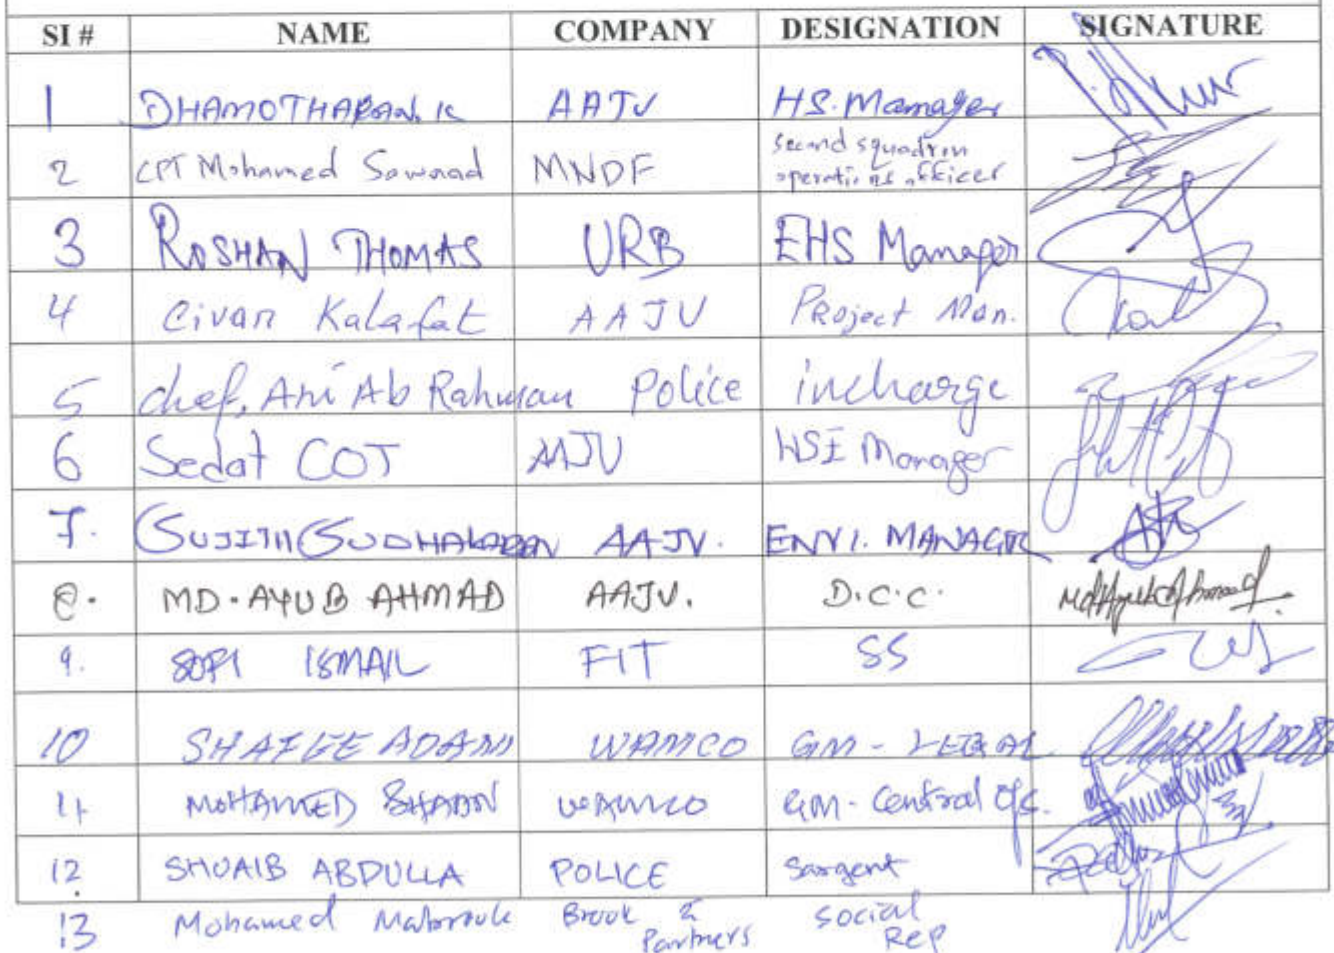 SI # NAME COMPANY DESIGNATION SIGNATURE
1 DHAMOTHARAN. K AAJV HS. Manager
2 CPT Mohamed Sawaad MNDF second squadron operations officer
3 ROSHAN THOMAS URB EHS Manager
4 Civan Kalafat AAJV Project Man.
5 chef, Ani Ab Rahman Police incharge
6 Sedat COT AAJV HSE Manager
7. SUJITH SUDHAKARAN AAJV. ENVI. MANAGER
8. MD. AYUB AHMAD AAJV. D.C.C. Md Ayub Ahmad.
9. ISMAIL FIT SS
10 SHAFEE ADAM WAMCO GM - LEGAL
11 MOHAMED WAMCO GM - Central
12 SHUAIB ABDULLA POLICE Sargent
13 Mohamed Mabrouk Brook & Partners social Rep